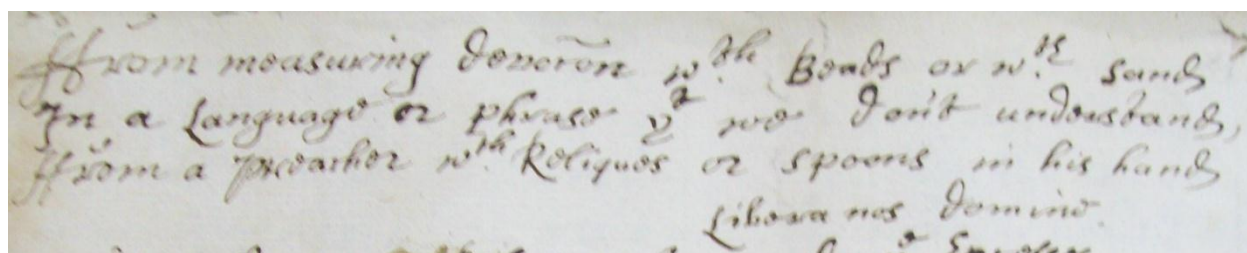 ffrom measuring devoc̃on wth Beads or wth sand
In a Language or phrase yt we don't understand,
ffrom a preacher wth Reliques or spoons in his hand
Libera nos domine.